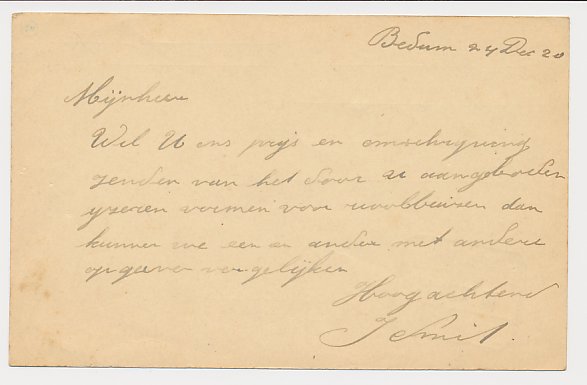 Bedum 24 Dec 20
Mijnheer
Wil U ons prijs en omschrijving
zenden van het door U aangeboden
ijzeren vormen voor rioolbuizen dan
kunnen we een en ander met andere
opgaven vergelijken
Hoogachtend
J Smit